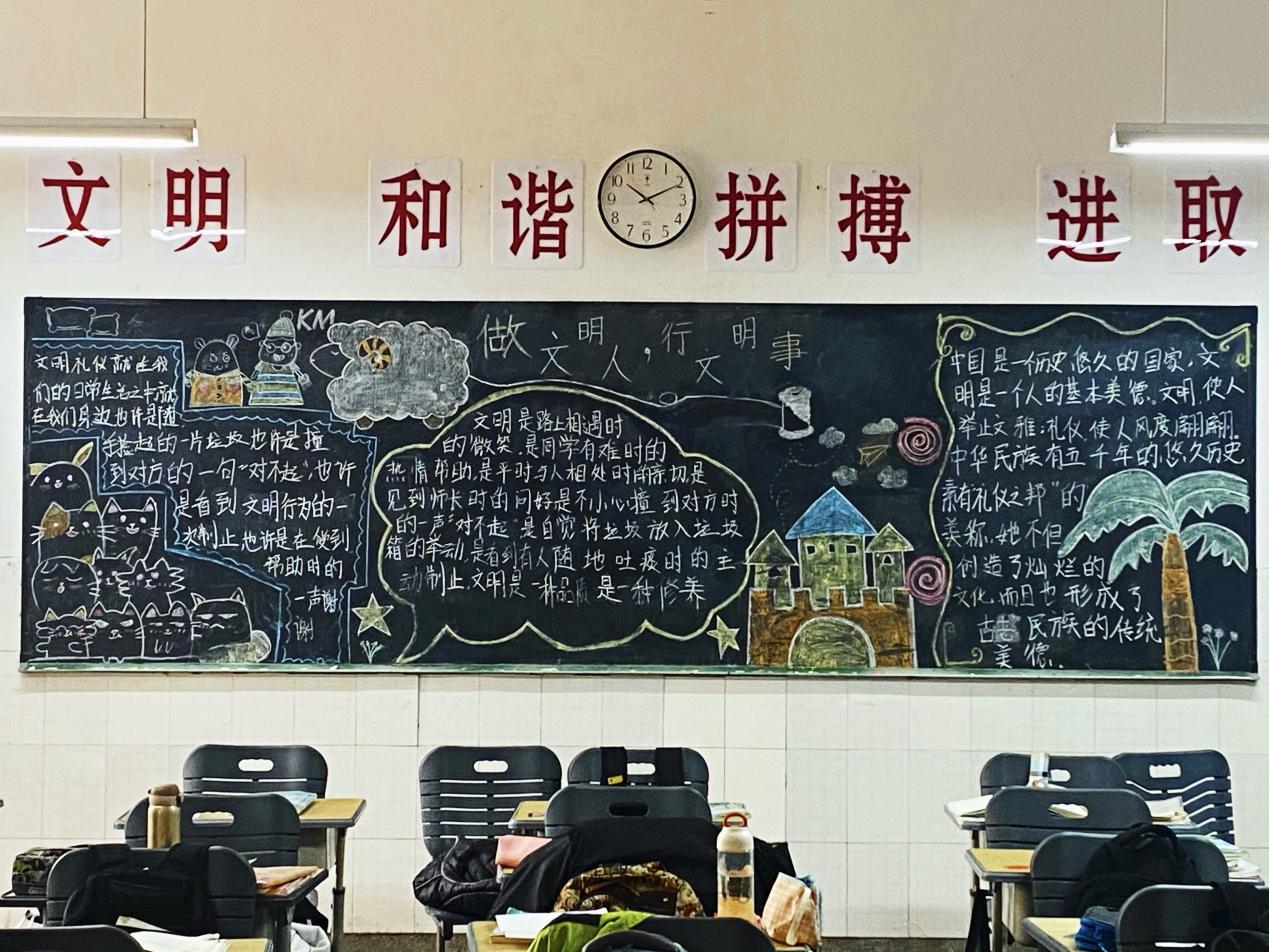 文明 和谐 拼搏 进取
12
1
2
3
4
5
6
7
8
9
10
11
KM
做文明人，行文明事
文明礼仪就在我
们的日常生活之中就
在我们身边也许是随
手捡起的一片垃圾也许是撞
到对方的一句“对不起”，也许
是看到文明行为的一
次制止也许是在收到
帮助时的
一声谢
谢
文明是路上相遇时
的微笑，是同学有难时的
热情帮助，是平时与人相处时的亲切是
见到师长时的问好是不小心撞到对方时
的一声“对不起”是自觉将垃圾放入垃圾
箱的举动，是看到有人随地吐痰时的主
动制止，文明是一种品质是一种修养
中国是一个历史悠久的国家，文
明是一个人的基本美德。文明使人
举止文雅；礼仪使人风度翩翩，
中华民族有五千年的悠久历史
素有礼仪之邦”的
美称，她不但
创造了灿烂的
文化，而且也形成了
民族的传统
美德．